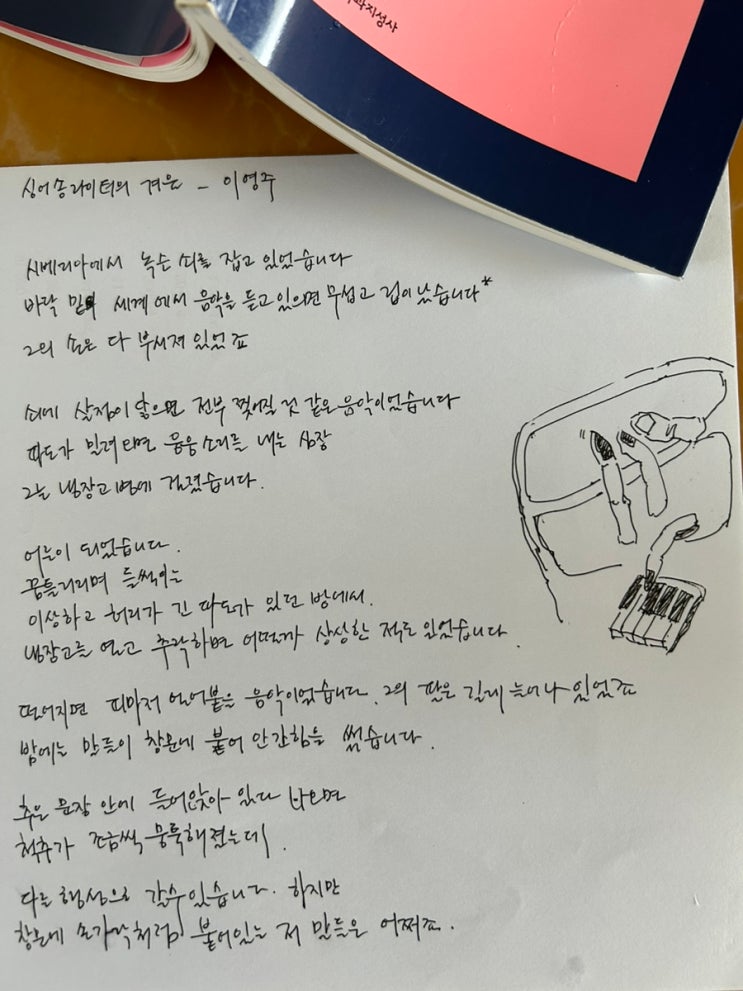 과지성사
싱어송라이터의 겨울 - 이영주
시베리아에서 녹슨 쇠를 잡고 있었습니다
바닥 밑 세계에서 음악을 듣고 있으면 무섭고 겁이 났습니다*
그의 손은 다 부서져 있었죠
쇠에 살점이 닿으면 전부 찢어질 것 같은 음악이었습니다
파도가 밀려오면 웅웅 소리를 내는 심장
그는 냉장고 옆에 걸렸습니다.
어른이 되었습니다.
꿈틀거리며 들썩이는
이상하고 허리가 긴 파도가 있던 방에서.
냉장고를 열고 추락하면 어떨까 상상한 적도 있었습니다.
떨어지면 피마저 얼어붙을 음악이었습니다. 그의 팔은 길게 늘어나 있었죠
밤에는 말들이 창문에 붙어 안간힘을 썼습니다.
추운 문장 안에 들어앉아 있다 나오면
척추가 조금씩 뭉툭해졌는데
다른 행성으로 갈 수 있습니다. 하지만
창문에 손가락처럼 붙어있는 저 말들은 어쩌죠.